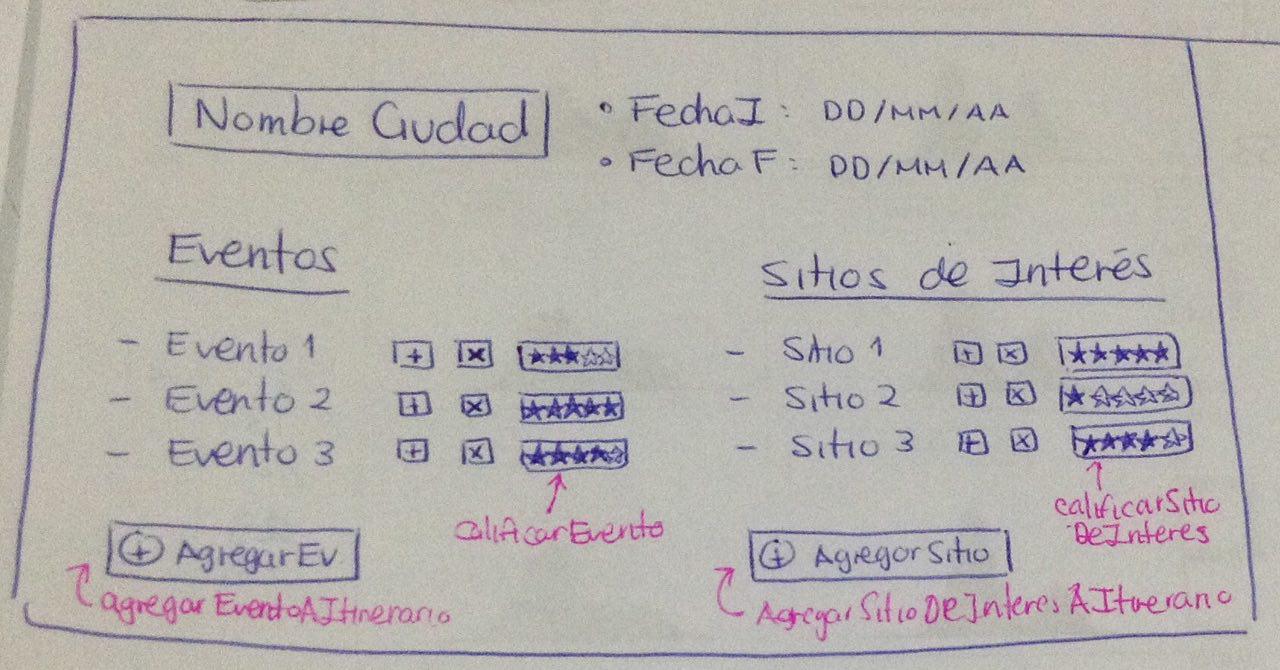 Nombre Ciudad
• FechaI: DD/MM/AA
• FechaF: DD/MM/AA
Eventos
- Evento 1 + x ★★★☆☆
- Evento 2 + x ★★★★★
- Evento 3 + x ★★★★☆
calificarEvento
+ AgregarEv
agregarEventoAItinerario
Sitios de Interés
- Sitio 1 + x ★★★★★
- Sitio 2 + x ★☆☆☆☆
- Sitio 3 + x ★★★★☆
calificarSitio
DeInteres
+ AgregarSitio
AgregarSitioDeInteresAItinerario